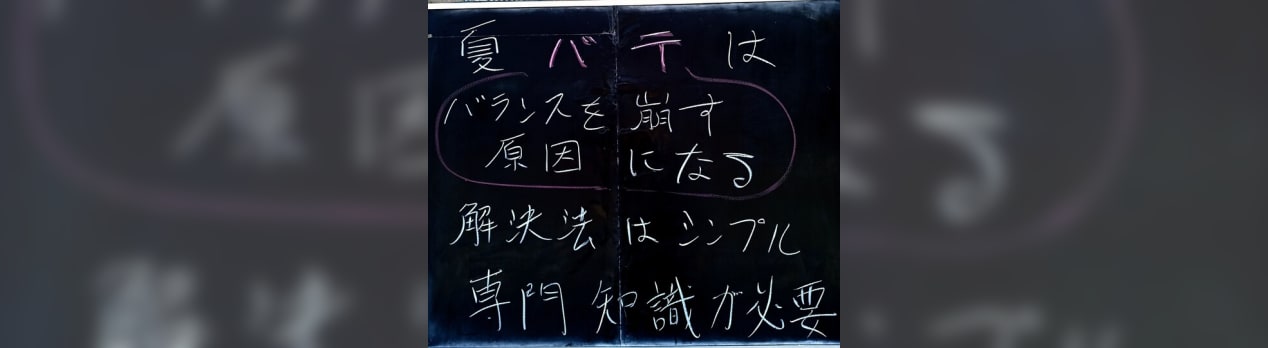 夏バテは
バランスを崩す
原因になる
解決法はシンプル
専門知識が必要